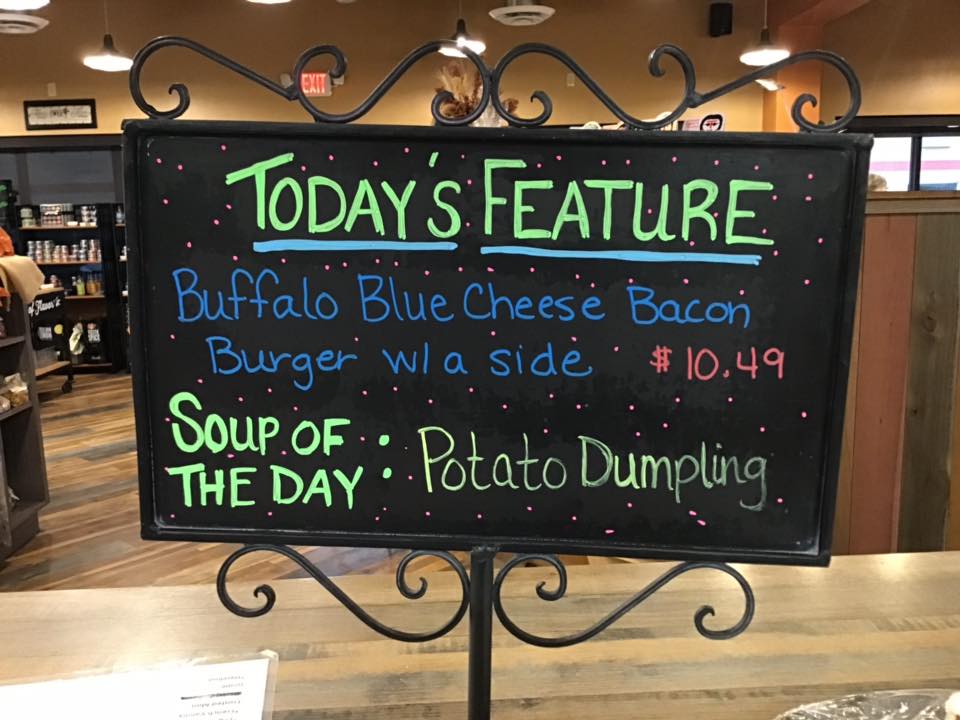 EXIT
TODAY'S FEATURE
Buffalo Blue Cheese Bacon
Burger w/ a side $10.49
SOUP OF
THE DAY : Potato Dumpling
of Flavor's